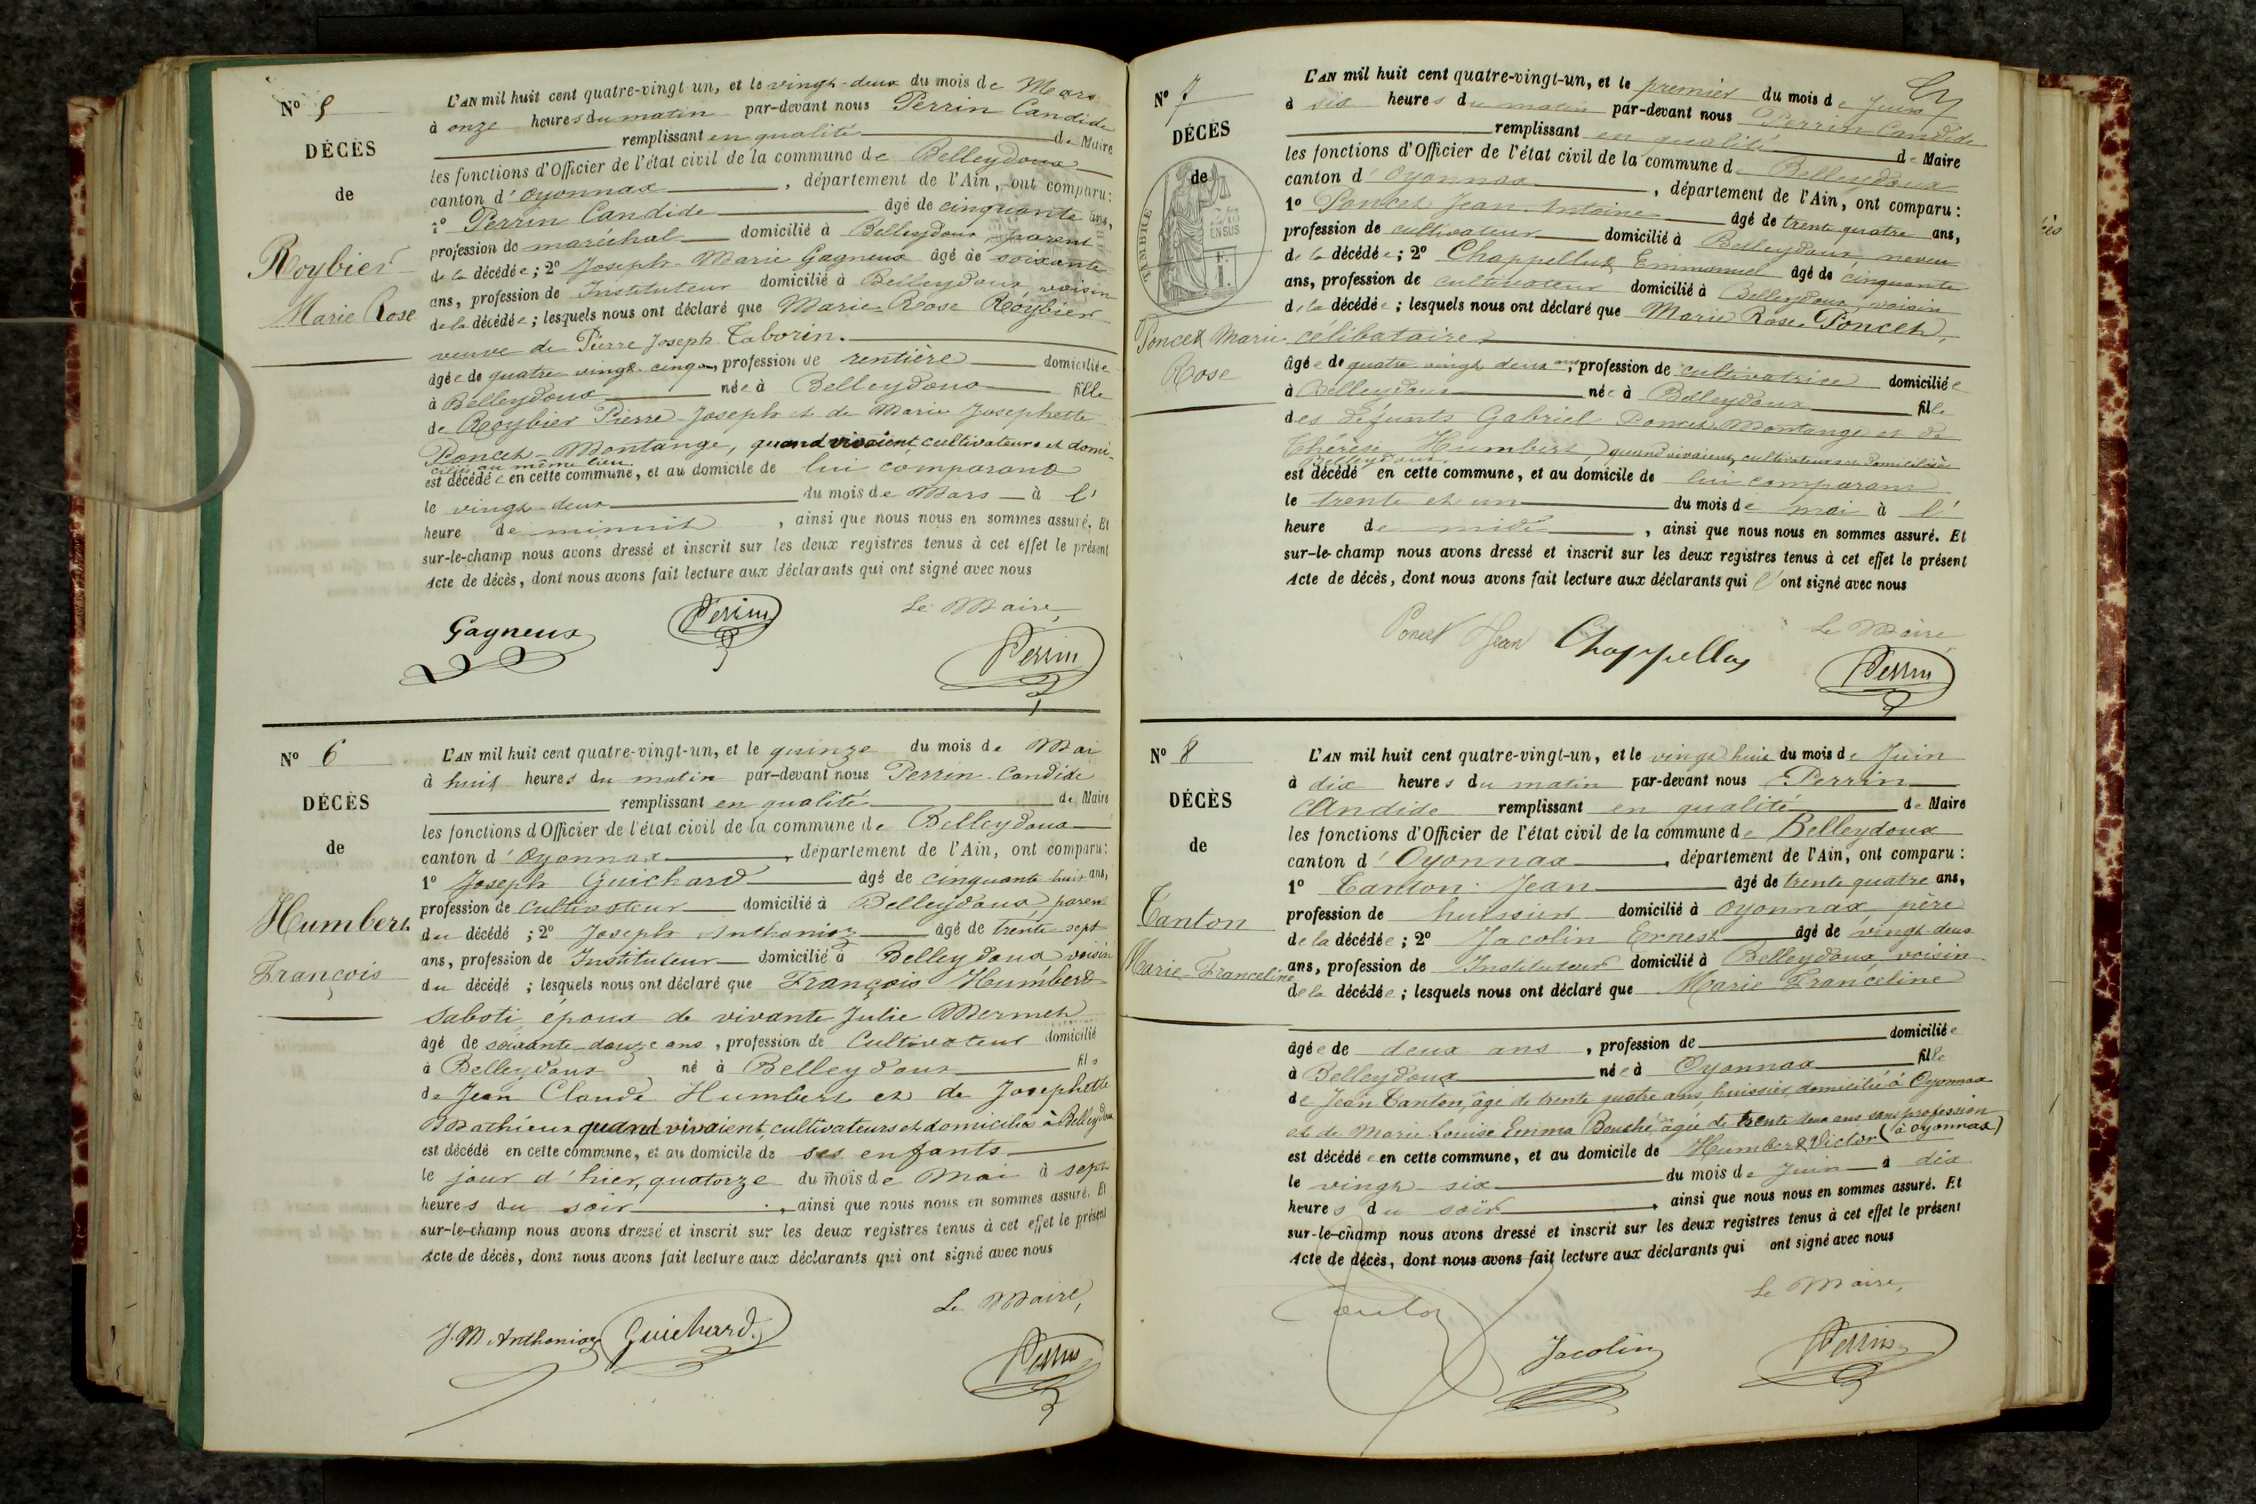 N° 5
DÉCÈS
de
Roybier
Marie Rose
L'AN mil huit cent quatre-vingt un, et le vingt-deux du mois de Mars
à onze heures du matin par-devant nous Perrin Candide
remplissant en qualité de Maire
les fonctions d'Officier de l'état civil de la commune de Belleydoux
canton d'Oyonnax, département de l'Ain, ont comparu:
1° Perrin Candide âgé de cinquante ans,
profession de maréchal domicilié à Belleydoux parent
de la décédée; 2° Joseph-Marie Gagneux âgé de soixante
ans, profession de Instituteur domicilié à Belleydoux voisin
de la décédée; lesquels nous ont déclaré que Marie-Rose Roybier
veuve de Pierre Joseph Taborin.
âgée de quatre vingt-cinq ans, profession de rentière domiciliée
à Belleydoux née à Belleydoux fille
de Roybier Pierre-Joseph et de Marie Josephette
Poncet-Montange, quand vivaient cultivateurs et domi-
ciliés au même lieu
est décédée en cette commune, et au domicile de lui comparant
le vingt-deux du mois de Mars à l'
heure de minuit, ainsi que nous nous en sommes assuré. Et
sur-le-champ nous avons dressé et inscrit sur les deux registres tenus à cet effet le présent
Acte de décès, dont nous avons fait lecture aux déclarants qui ont signé avec nous
Le Maire
Gagneux Perrin Perrin
N° 6
DÉCÈS
de
Humbert
François
L'AN mil huit cent quatre-vingt-un, et le quinze du mois de Mai
à huit heures du matin par-devant nous Perrin Candide
remplissant en qualité de Maire
les fonctions d'Officier de l'état civil de la commune de Belleydoux
canton d'Oyonnax, département de l'Ain, ont comparu:
1° Joseph Guichard âgé de cinquante huit ans,
profession de cultivateur domicilié à Belleydoux parent
du décédé; 2° Joseph Anthonioz âgé de trente sept
ans, profession de Instituteur domicilié à Belleydoux voisin
du décédé; lesquels nous ont déclaré que François Humbert
Saboti époux de vivante Julie Mermet
âgé de soixante-douze ans, profession de Cultivateur domicilié
à Belleydoux né à Belleydoux fils
de Jean Claude Humbert et de Josephette
Mathieu quand vivaient, cultivateurs et domiciliés à Belleydoux
est décédé en cette commune, et au domicile de ses enfants
le jour d'hier, quatorze du mois de Mai à sept
heures du soir, ainsi que nous nous en sommes assuré. Et
sur-le-champ nous avons dressé et inscrit sur les deux registres tenus à cet effet le présent
Acte de décès, dont nous avons fait lecture aux déclarants qui ont signé avec nous
Le Maire,
J.M. Anthonioz Guichard Perrin
N° 7
DÉCÈS
de
Poncet Marie
Rose
L'AN mil huit cent quatre-vingt-un, et le premier du mois de Juin
à six heures du matin par-devant nous Perrin Candide
remplissant en qualité de Maire
les fonctions d'Officier de l'état civil de la commune de Belleydoux
canton d'Oyonnax, département de l'Ain, ont comparu:
1° Poncet Jean Antoine âgé de trente quatre ans,
profession de cultivateur domicilié à Belleydoux, neveu
de la décédée; 2° Chappelluz Emmanuel âgé de cinquante
ans, profession de cultivateur domicilié à Belleydoux, voisin
de la décédée; lesquels nous ont déclaré que Marie Rose Poncet,
célibataire
âgée de quatre vingt deux ans, profession de cultivatrice domiciliée
à Belleydoux née à Belleydoux fille
des défunts Gabriel Poncet-Montange et de
Thérèse Humbert, quand vivaient, cultivateurs domiciliés
Belleydoux
est décédé en cette commune, et au domicile de lui comparant
le trente et un du mois de mai à l'
heure de midi, ainsi que nous nous en sommes assuré. Et
sur-le-champ nous avons dressé et inscrit sur les deux registres tenus à cet effet le présent
Acte de décès, dont nous avons fait lecture aux déclarants qui l'ont signé avec nous
Le Maire
Poncet Jean Chappelluz Perrin
N° 8
DÉCÈS
de
Tanton
Marie-Franceline
L'AN mil huit cent quatre-vingt-un, et le vingt huit du mois de Juin
à dix heures du matin par-devant nous Perrin
Candide remplissant en qualité de Maire
les fonctions d'Officier de l'état civil de la commune de Belleydoux
canton d'Oyonnax, département de l'Ain, ont comparu:
1° Tanton Jean âgé de trente quatre ans,
profession de huissier domicilié à Oyonnax père
de la décédée; 2° Jacolin Ernest âgé de vingt deux
ans, profession de Instituteur domicilié à Belleydoux voisin
de la décédée; lesquels nous ont déclaré que Marie Franceline
âgée de deux ans, profession de domiciliée
à Belleydoux née à Oyonnax fille
de Jean Tanton, âgé de trente quatre ans, huissier, domicilié à Oyonnax
et de Marie Louise Emma Bouché âgée de trente deux ans sans profession
(à Oyonnax)
est décédée en cette commune, et au domicile de Humbert Victor
le vingt-six du mois de Juin à dix
heures du soir, ainsi que nous nous en sommes assuré. Et
sur-le-champ nous avons dressé et inscrit sur les deux registres tenus à cet effet le présent
Acte de décès, dont nous avons fait lecture aux déclarants qui ont signé avec nous
Le Maire,
Jacolin Perrin